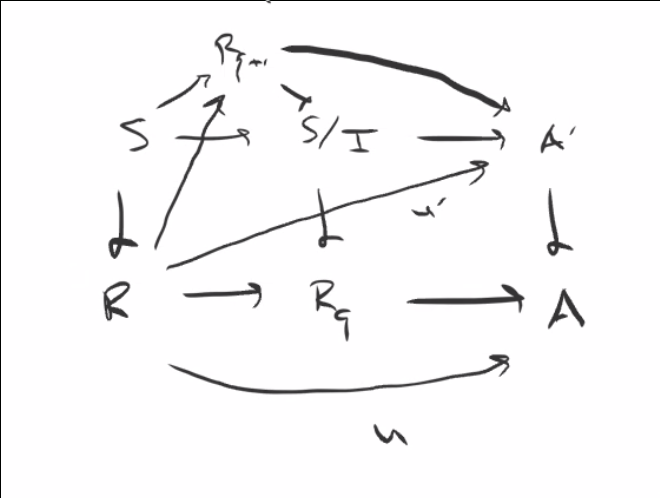 R_{q+1}
S S/I A'
u'
R R_q A
u